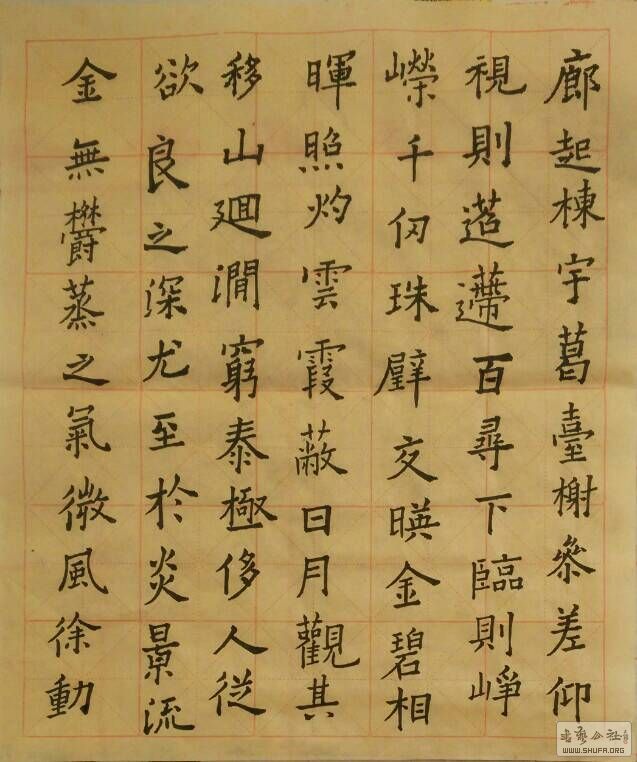 廊起棟宇葛臺榭叅差仰
視則迢遰百尋下臨則崢
嶸千仞珠壁交暎金碧相
暉照灼雲霞蔽日月觀其
移山廻澗窮泰極侈人從
欲良之深尤至於炎景流
金無欝蒸之氣微風徐動
WWW.SHUFA.ORG